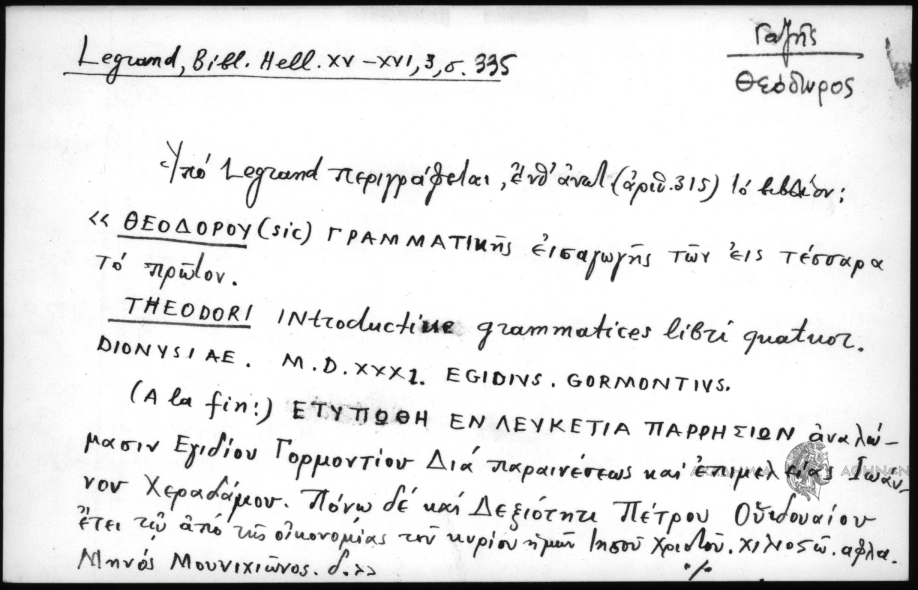 Legrand, Bibl. Hell. XV–XVI, 3, σ. 335
Γαζῆς
Θεόδωρος
Ὑπό Legrand περιγράφεται, ἔνθ' ἀνωτ. (ἀριθ. 315) τό βιβλίον:
« ΘΕΟΔΟΡΟΥ (sic) ΓΡΑΜΜΑΤΙΚῆς εἰσαγωγῆς τῶν εἰς τέσσαρα
τό πρῶτον.
THEODORI INtroductiue grammatices libri quatuor.
DIONYSIAE. M.D.XXXI. EGIDIVS. GORMONTIVS.
(A la fin:) ΕΤΥΠΩΘΗ ΕΝ ΛΕΥΚΕΤΙΑ ΠΑΡΡΗΣΙΩΝ ἀναλώ-
μασιν Εγιδίου Γορμοντίου Διά παραινέσεως καί ἐπιμελείας Ιωάν-
νου Χεραδάμου. Πόνῳ δέ καί Δεξιότητι Πέτρου Οὐιδουαίου
ἔτει τῷ ἀπό τῆς οἰκονομίας τοῦ κυρίου ἡμῶν Ιησοῦ Χριστοῦ. χιλιοστῷ. αφλα.
Μηνός Μουνιχιῶνος. δ.»
·/.